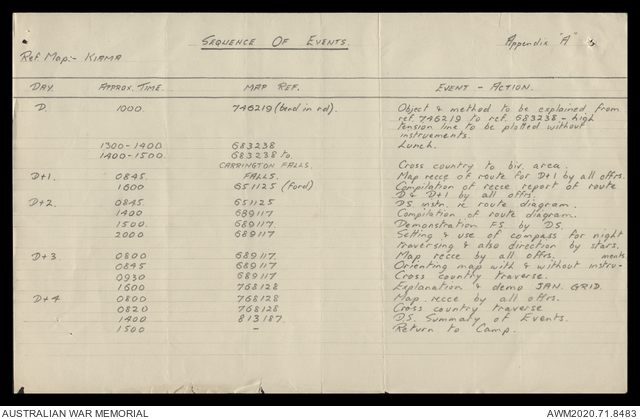 SEQUENCE OF EVENTS.
Appendix "A"
Ref. Map:- KIAMA
DAY. APPROX. TIME. MAP REF. EVENT - ACTION.
D. 1000 746219 (bend in rd). Object & method to be explained from
ref. 746219 to ref. 683238 - high
tension line to be plotted without
instruments.
1300-1400 683238 Lunch.
1400-1500. 683238 to
CARRINGTON FALLS. Cross country to biv. area.
D+1. 0845. FALLS. Map recce of route for D+1 by all offrs.
1600 651125 (ford) Compilation of recce report of route
D & D+1 by all offrs.
D+2. 0845. 651125 DS instn. re route diagram.
1400 689117 Compilation of route diagram.
1500. 689117 Demonstration FS by DS.
2000 689117 Setting & use of compass for night
traversing & also direction by stars.
D+3 0800 689117 Map recce by all offrs.
0845 689117 Orienting map with & without instru-
ments.
0930 689117 Cross country traverse.
1600 768128 Explanation & demo JAN. GRID.
D+4 0800 768128 Map recce by all offrs.
0820 768128 Cross country traverse
1400 813187 D.S. Summary of Events.
1500 - Return to Camp.
AUSTRALIAN WAR MEMORIAL
AWM2020.71.8483